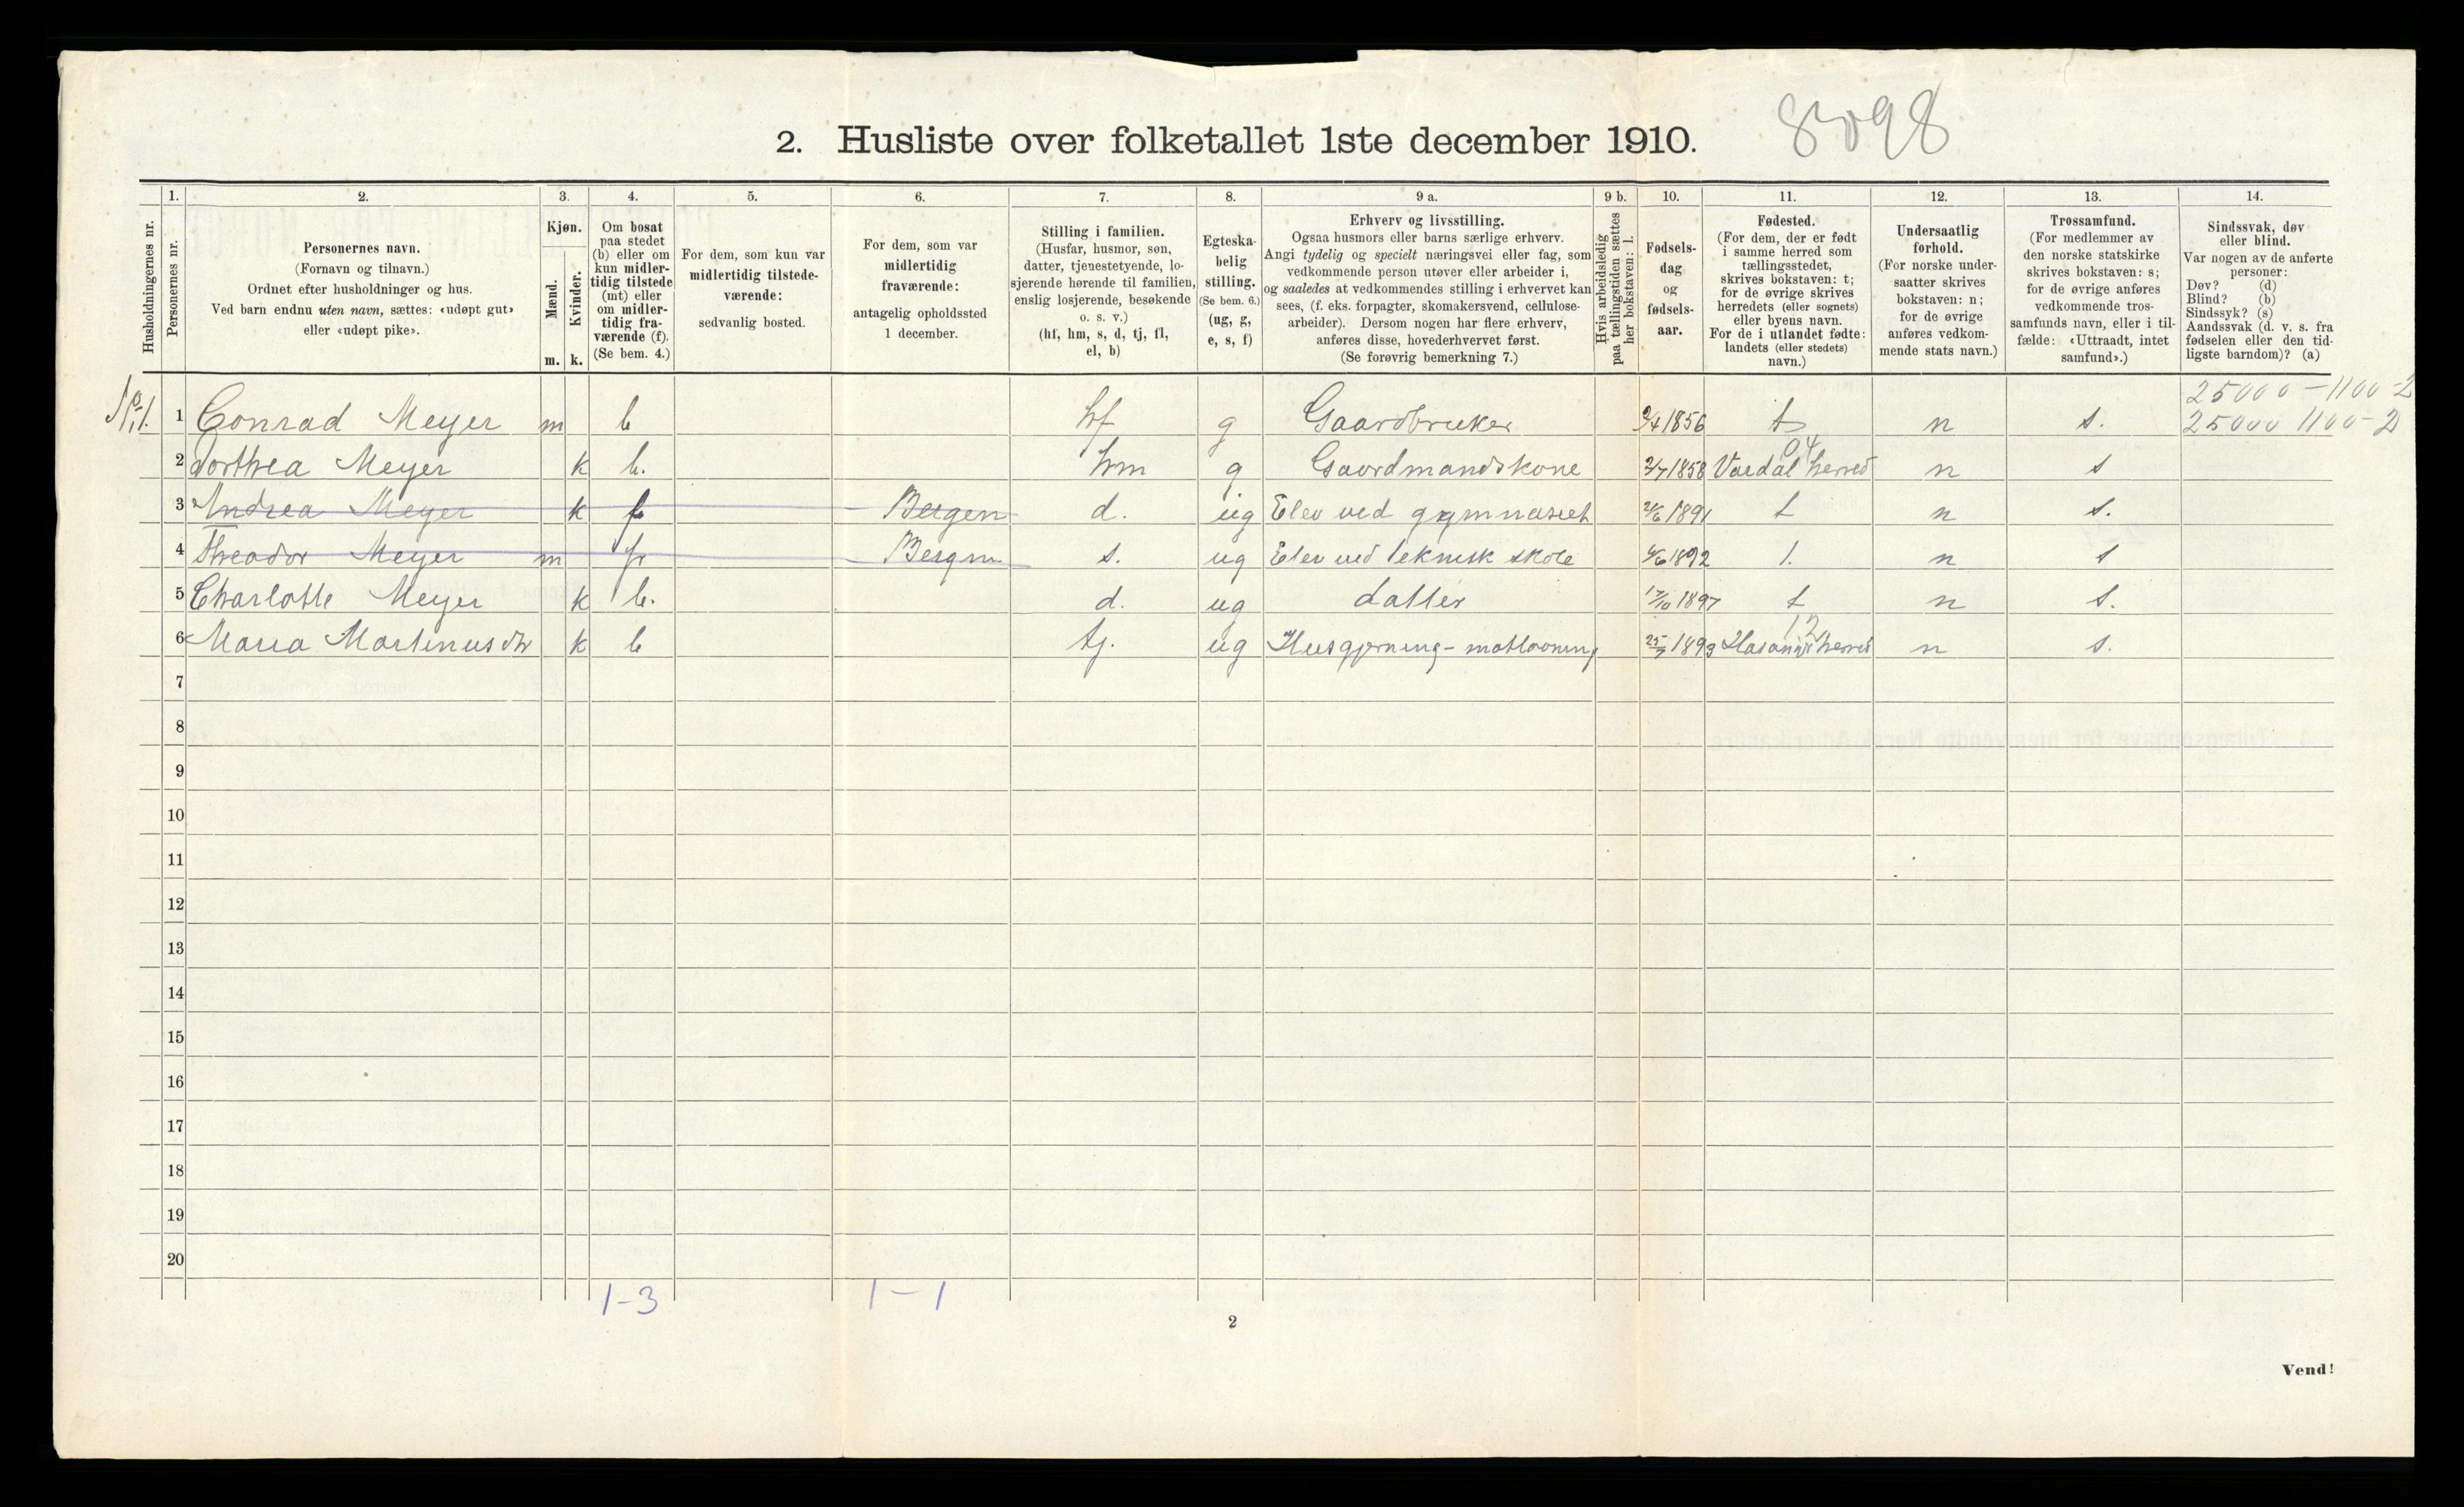 2. Husliste over folketallet 1ste december 1910.
Husholdningernes nr.
1. Personernes nr.
2. Personernes navn.
(Fornavn og tilnavn.)
Ordnet efter husholdninger og hus.
Ved barn endnu uten navn, sættes: «udøpt gut»
eller «udøpt pike».
3. Kjøn.
Mænd. m.
Kvinder. k.
4. Om bosat
paa stedet
(b) eller om
kun midler-
tidig tilstede
(mt) eller
om midler-
tidig fra-
værende (f).
(Se bem. 4.)
5. For dem, som kun var
midlertidig tilstede-
værende:
sedvanlig bosted.
6. For dem, som var
midlertidig
fraværende:
antagelig opholdssted
1 december.
7. Stilling i familien.
(Husfar, husmor, søn,
datter, tjenestetyende, lo-
sjerende hørende til familien,
enslig losjerende, besøkende
o. s. v.)
(hf, hm, s, d, tj, fl,
el, b)
8. Egteska-
belig
stilling.
(Se bem. 6.)
(ug, g,
e, s, f)
9 a. Erhverv og livsstilling.
Ogsaa husmors eller barns særlige erhverv.
Angi tydelig og specielt næringsvei eller fag, som
vedkommende person utøver eller arbeider i,
og saaledes at vedkommendes stilling i erhvervet kan
sees, (f. eks. forpagter, skomakersvend, cellulose-
arbeider). Dersom nogen har flere erhverv,
anføres disse, hovederhvervet først.
(Se forøvrig bemerkning 7.)
9 b. Hvis arbeidsledig
paa tællingstiden sættes
her bokstaven: l.
10. Fødsels-
dag
og
fødsels-
aar.
11. Fødested.
(For dem, der er født
i samme herred som
tællingsstedet,
skrives bokstaven: t;
for de øvrige skrives
herredets (eller sognets)
eller byens navn.
For de i utlandet fødte:
landets (eller stedets)
navn.)
12. Undersaatlig
forhold.
(For norske under-
saatter skrives
bokstaven: n;
for de øvrige
anføres vedkom-
mende stats navn.)
13. Trossamfund.
(For medlemmer av
den norske statskirke
skrives bokstaven: s;
for de øvrige anføres
vedkommende tros-
samfunds navn, eller i til-
fælde: «Uttraadt, intet
samfund».)
14. Sindssvak, døv
eller blind.
Var nogen av de anførte
personer:
Døv? (d)
Blind? (b)
Sindssyk? (s)
Aandssvak (d. v. s. fra
fødselen eller den tid-
ligste barndom)? (a)
25000 - 1100 - 2
1 Conrad Meyer m b hf g Gaardbruker 1856 t n s. 25000 1100 - 2
2 Dorthea Meyer k b. hm g Gaardmandskone 2/7 1858 Vardal herred n s
3 Andrea Meyer k f Bergen d. ug Elev ved gymnasiet 1891 t n s.
4 Theador Meyer m f Bergen s. ug Elev ved teknisk skole 1892 t. n s
5 Charlotte Meyer k b. d. ug datter 17/10 1897 t n s.
6 Maria Martinusdtr k b tj. ug Husgjerning - matlavning 25/7 1893 herred n s.
7
8
9
10
11
12
13
14
15
16
17
18
19
20
1-3 1-1
2
Vend!